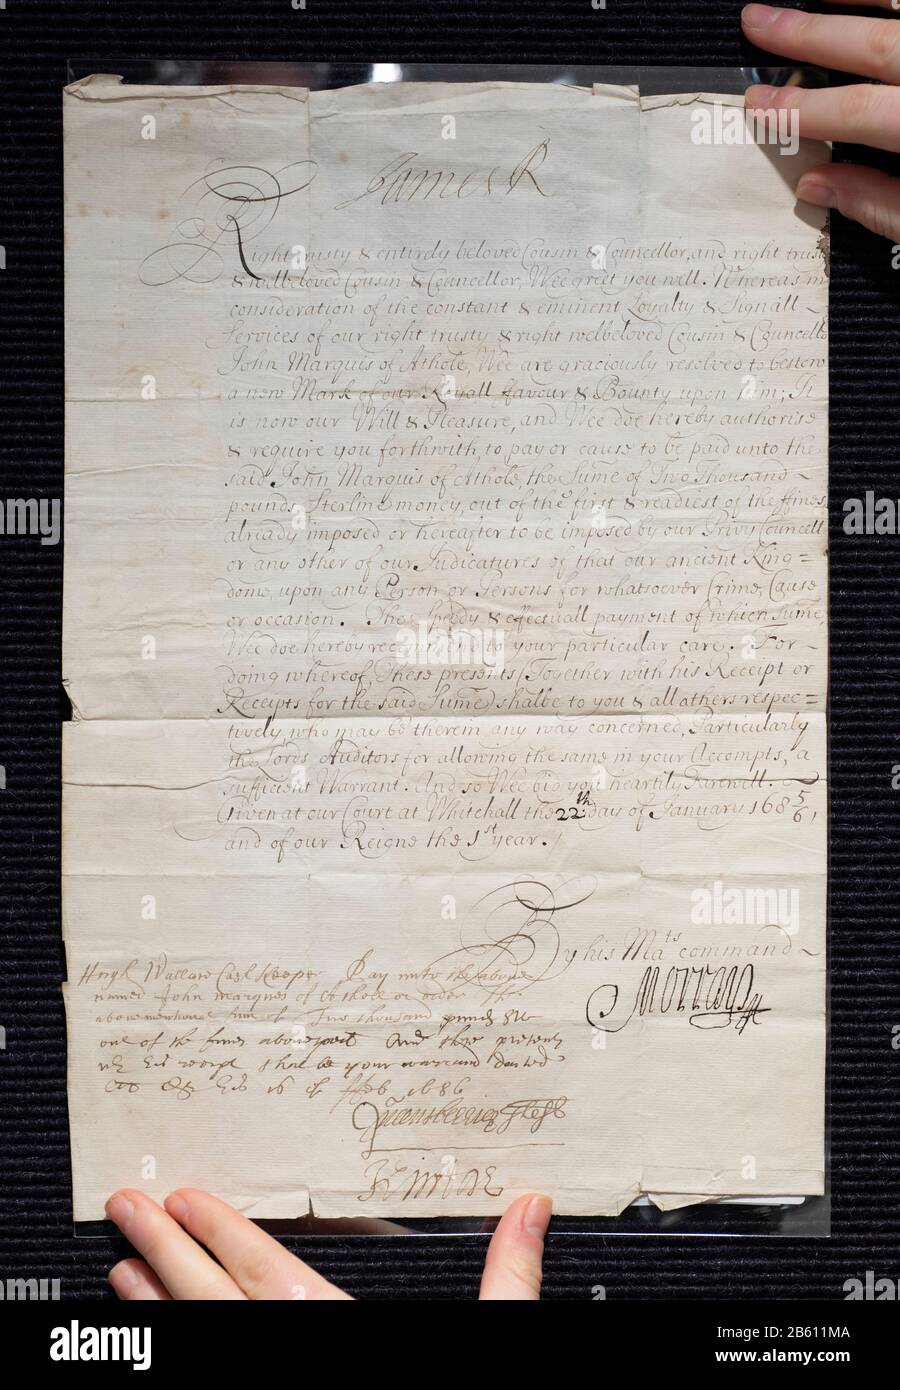 James R
Right trusty & entirely beloved Cousin & Councellor, and right trusty
& welbeloved Cousin & Councellor, Wee greet you well. Whereas in
consideration of the constant & eminent Loyalty & Signall
Services of our right trusty & right welbeloved Cousin & Councello
John Marquis of Athole, Wee are graciously resolved to bestow
a new Mark of our Royall favour & Bounty upon him; It
is now our Will & Pleasure, and Wee doe hereby authorise
& require you forthwith to pay or cause to be paid unto the
said John Marquis of Athole, the Sume of Two Thousand
pounds Sterline money, out of the first & readiest of the ffines
already imposed or hereafter to be imposed by our Privy Councell
or any other of our Judicatures of that our ancient King=
dome, upon any Person or Persons for whatsoever Crime, Cause
or occasion. The speedy & effectuall payment of which sume,
Wee doe hereby recommend to your particular care. For
doing whereof, These presents (Together with his Receipt or
Receipts for the said Sume) shalbe to you & all others respec=
tively, who may be therein any way concerned, Particularly
the Lords Auditors for allowing the same in your Accompts, a
sufficient Warrant. And so Wee bid you heartily Farewell.
Given at our Court at Whitehall the 22th day of January 1685/6,
and of our Reigne the 1st year.
By his Mats command
Morray
Hugh Wallace Cash keeper Pay unto the above
named John marques of Atholl or order the
abovementioned sum of Two thousand punds
out of the fines and these presents
receipt shal be your warrand dated
16 of ffeb 1686
Queensberrie
alamy
2B611MA
www.alamy.com